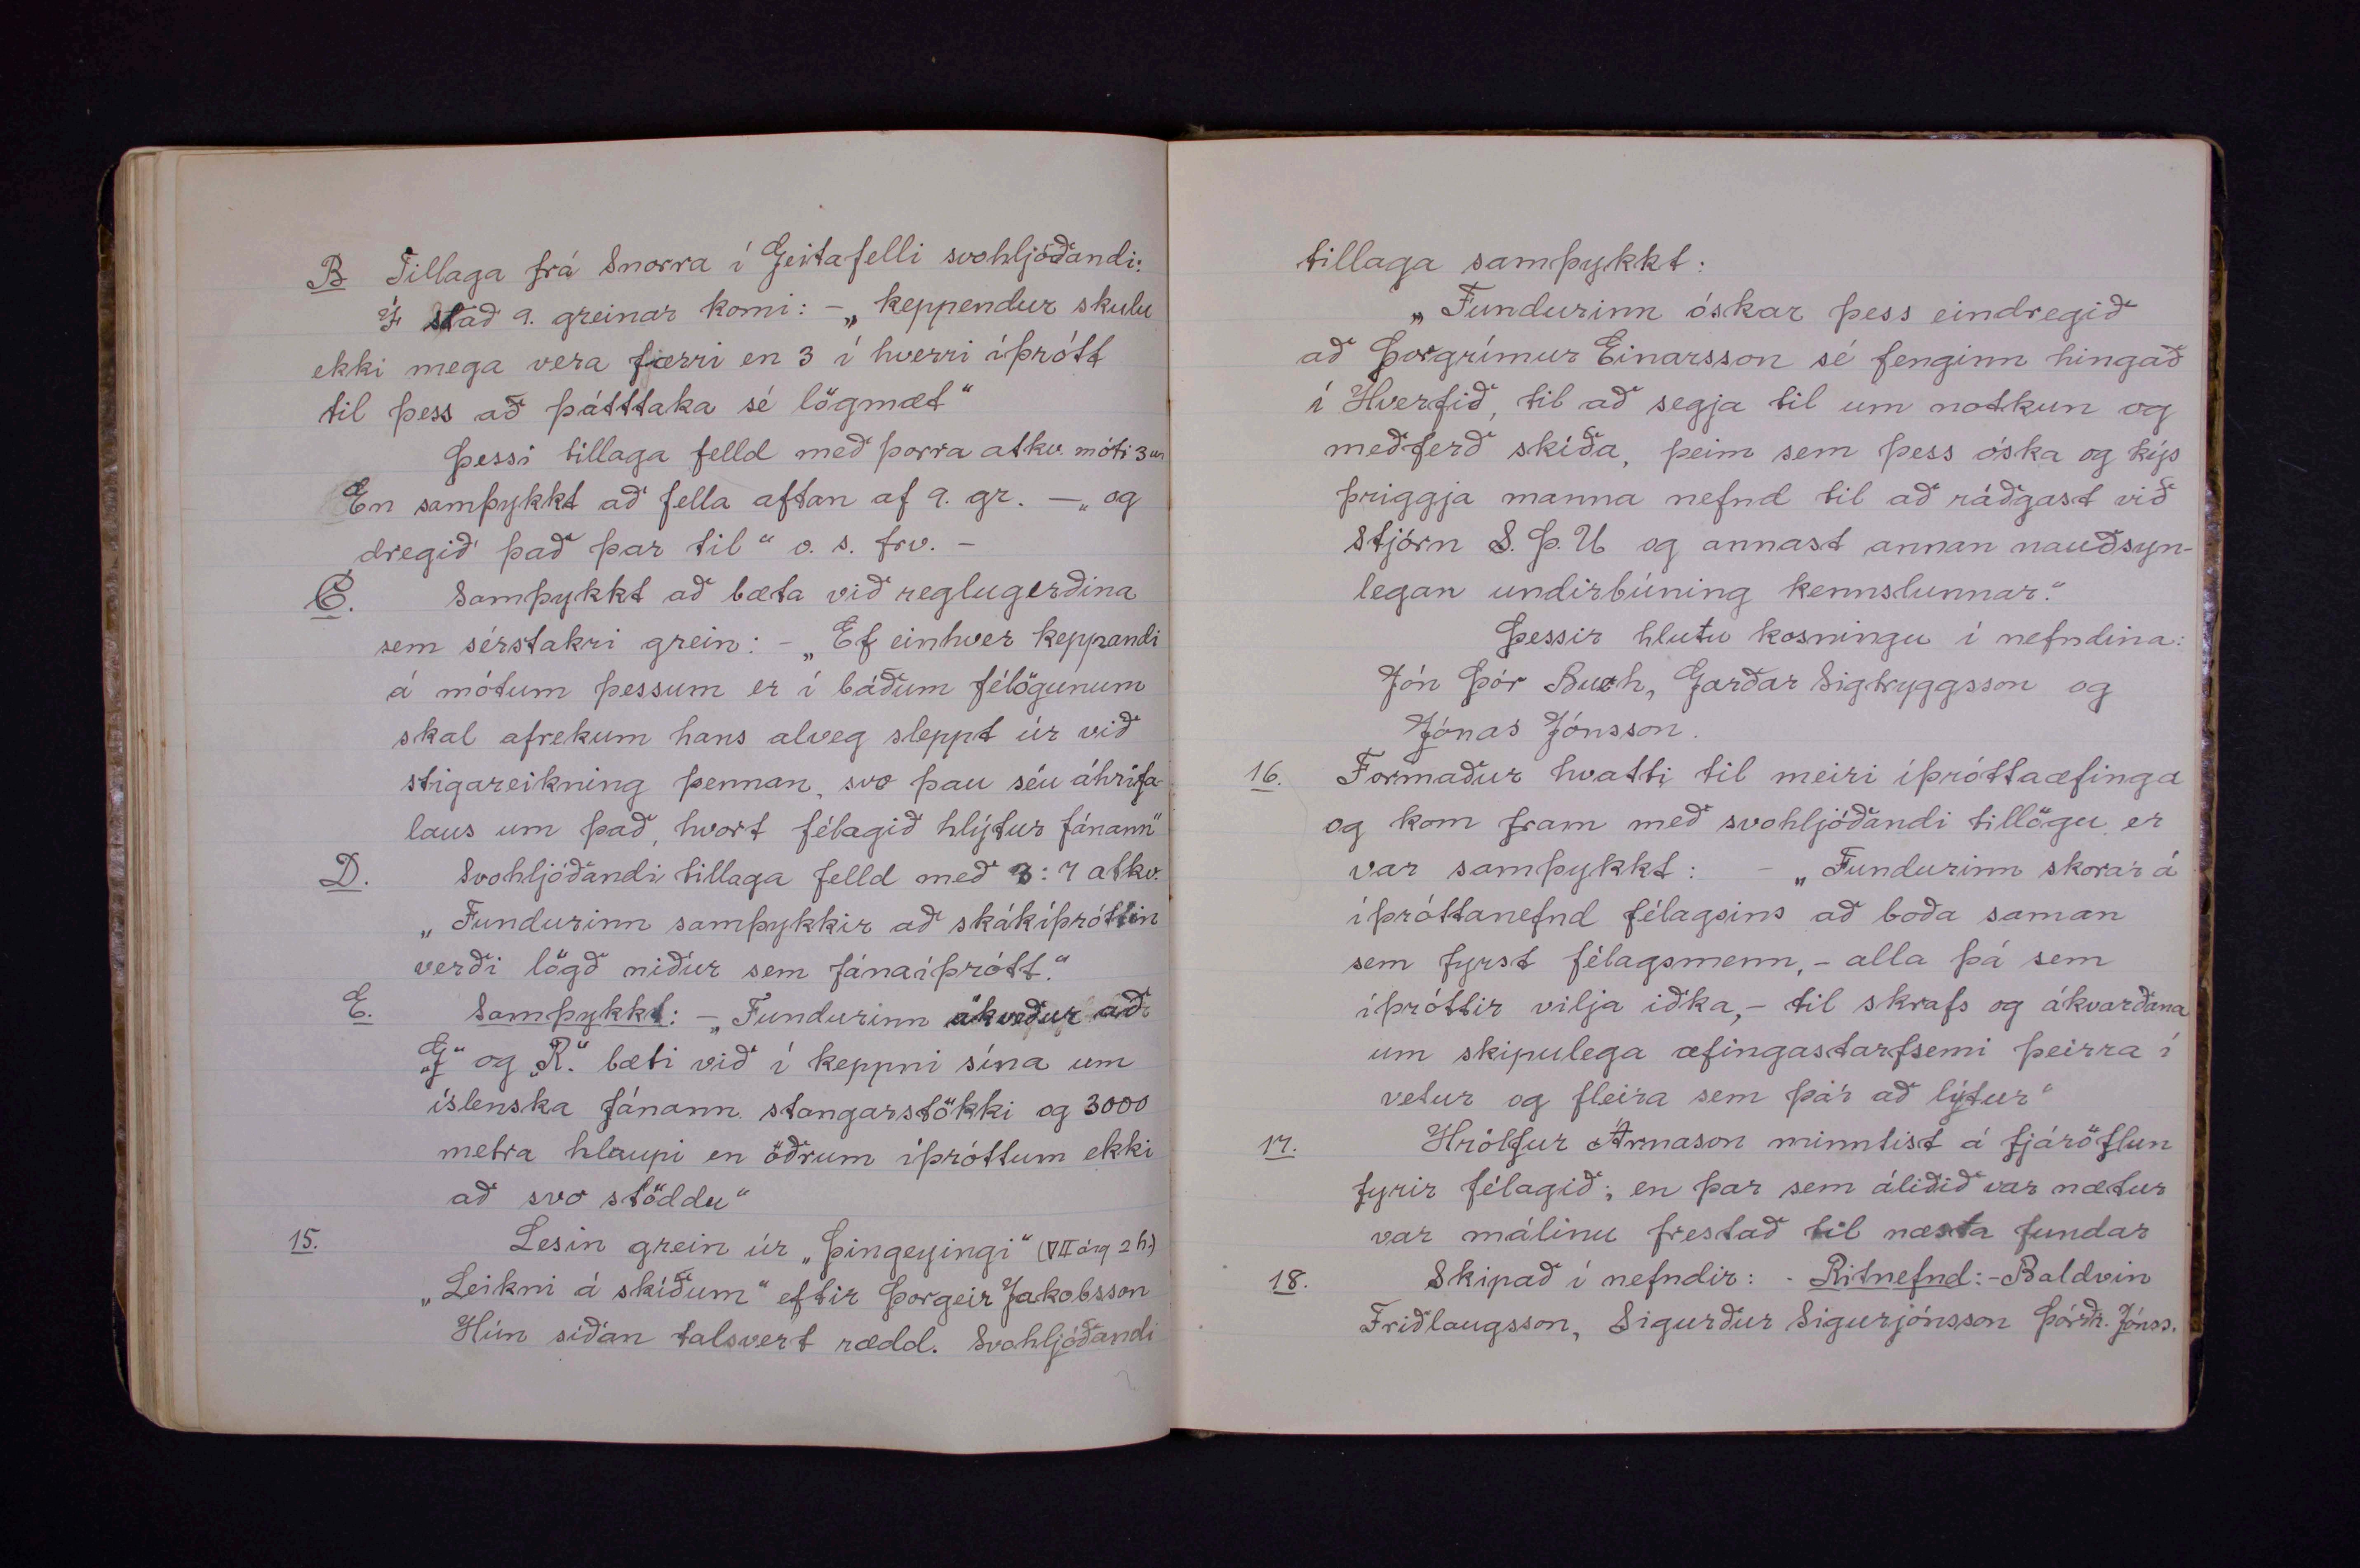 B Tillaga frá Snorra í Geitafelli svohljóðandi:
Í stað 9. greinar komi: - „keppendur skulu
ekki mega vera færri en 3 í hverri íþrótt
til þess að þátttaka sé lögmæt“
Þessi tillaga felld með þorra atkv. móti 3ur
En samþykkt að fella aftan af 9. gr. — „og
dregið það þar til“ o. s. frv. -
C. Samþykkt að bæta við reglugerðina
sem sérstakri grein: - „Ef einhver keppandi
á mótum þessum er í báðum félögunum
skal afrekum hans alveg sleppt úr við
stigareikning þennan, svo þau séu áhrifa-
laus um það, hvort félagið hlýtur fánann“
D. Svohljóðandi tillaga felld með 8:7 atkv.
„Fundurinn samþykkir að skákíþróttin
verði lögð niður sem fánaíþrótt.“
E. Samþykkt: - „Fundurinn ákveður að
„G“ og „R“. bæti við í keppni sína um
íslenska fánann stangarstökki og 3000
metra hlaupi en öðrum íþróttum ekki
að svo stöddu“
15. Lesin grein úr „Þingeyingi“ (VII árg 2 h.)
„Leikni á skíðum“ eftir Þorgeir Jakobsson
Hún síðan talsvert rædd. Svohljóðandi
tillaga samþykkt:
„Fundurinn óskar þess eindregið
að Þorgrímur Einarsson sé fenginn hingað
í Hverfið, til að segja til um notkun og
meðferð skíða, þeim sem þess óska og kýs
þriggja manna nefnd til að ráðgast við
Stjórn S. Þ. U og annast annan nauðsyn-
legan undirbúning kennslunnar.“
Þessir hlutu kosningu í nefndina:
Jón Þór Buch, Garðar Sigtryggsson og
Jónas Jónsson.
16. Formaður hvatti til meiri íþróttaæfinga
og kom fram með svohljóðandi tillögu er
var samþykkt: - „Fundurinn skorar á
íþróttanefnd félagsins að boða saman
sem fyrst félagsmenn, - alla þá sem
íþróttir vilja iðka, - til skrafs og ákvarðana
um skipulega æfingastarfsemi þeirra í
vetur og fleira sem þar að lýtur“
17. Hrólfur Árnason minntist á fjáröflun
fyrir félagið; en þar sem áliðið var nætur
var málinu frestað til næsta fundar
18. Skipað í nefndir: - Ritnefnd: - Baldvin
Friðlaugsson, Sigurður Sigurjónsson Þórðr. Jónss.